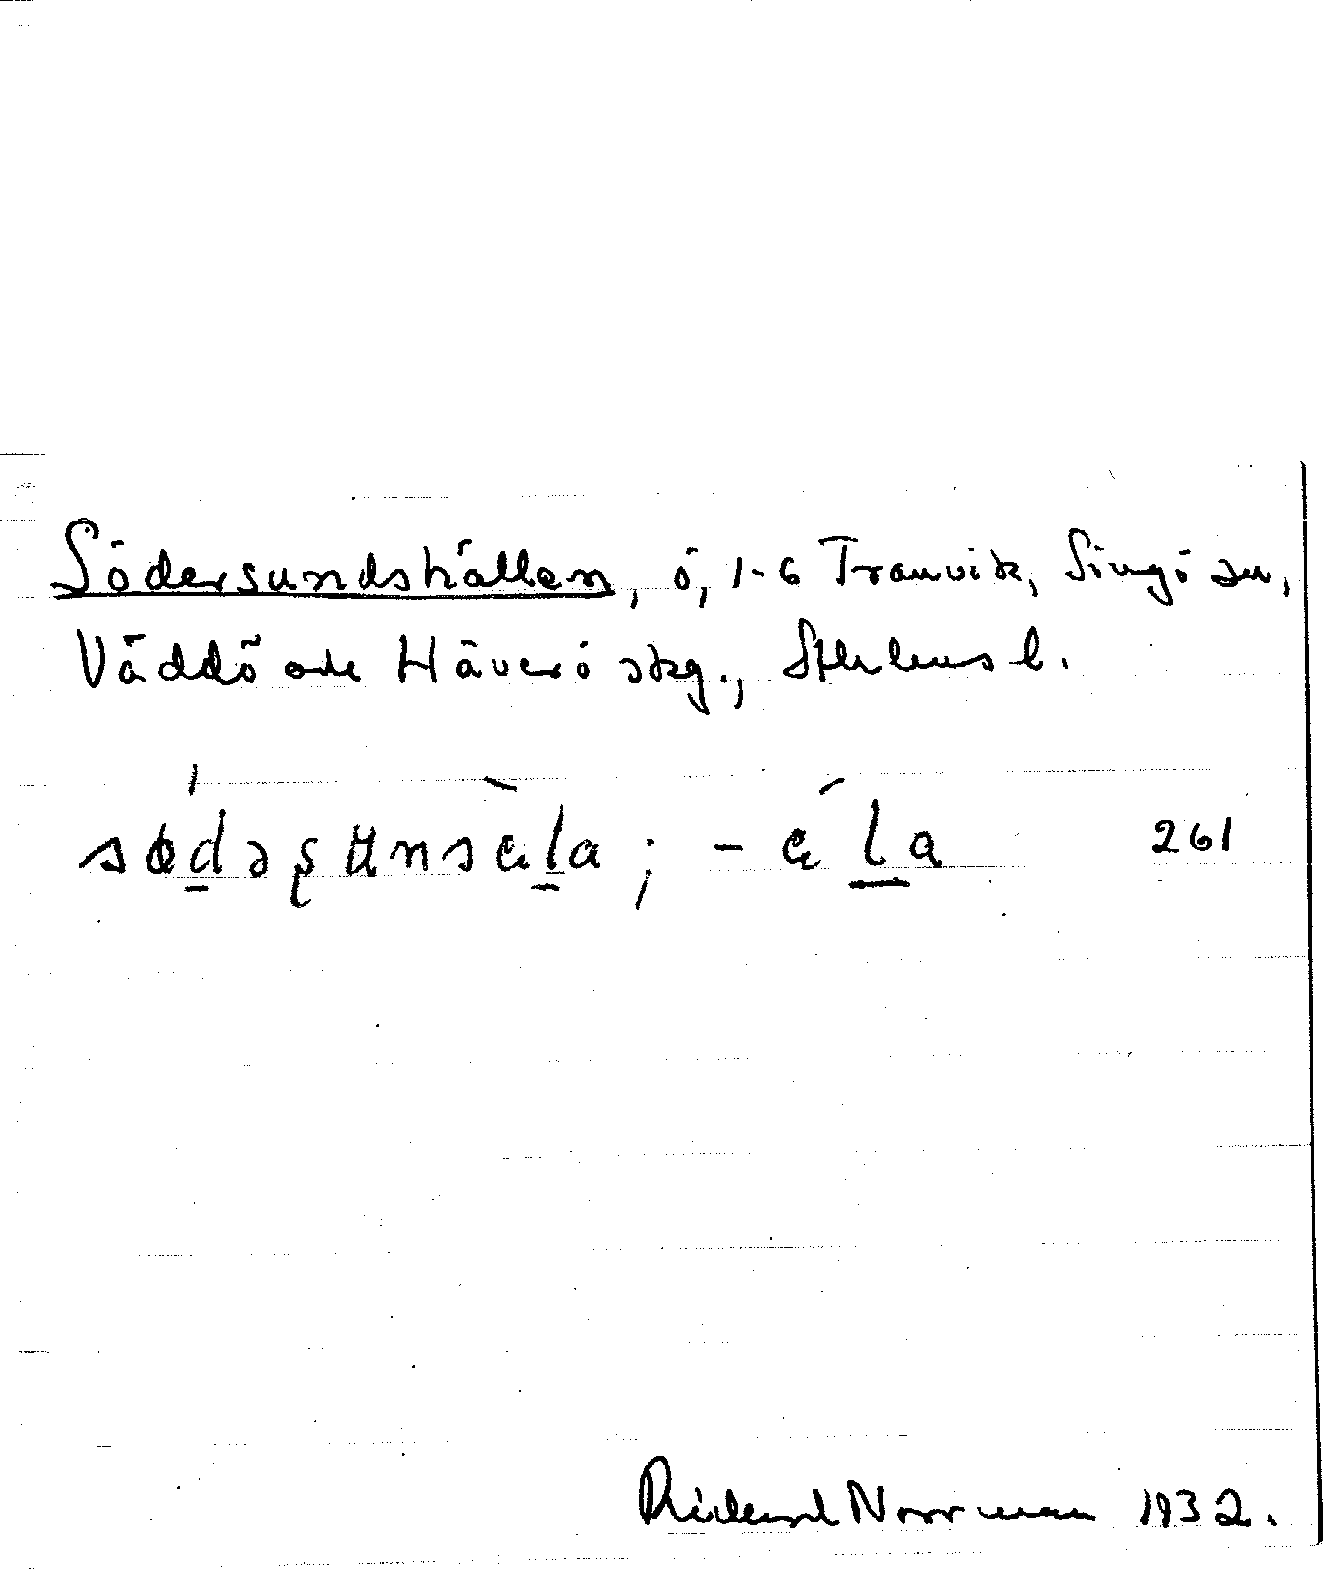 Södersundshällen, ö, 1-6 Tranvik, Singö sn,
Väddö och Häverö skg., Sthlms l.
sødəʂʉnsæla; -æla 261
Rickard Norrman 1932.